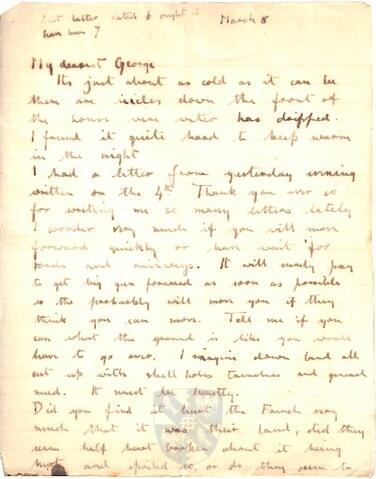 last letter dated 6 ought to
have been 7
March 8
My dearest George
Its just about as cold as it can be
there are icicles down the front of
the house were water has dripped.
I found it quite hard to keep warm
in the night
I had a letter from yesterday evening
written on the 4th Thank you ever so
for writing me so many letters lately
I wonder very much if you will move
forward quickly or have wait for
roads and railways. It will surely pay
to get big guns forward as soon as possible
so the probably will move you if they
think you can move. Tell me if you
can what the ground is like you would
have to go over. I imagine down land all
cut up with shell holes trenches and general
mud. It must be beastly.
Did you find it hurt the French very
much that it was their land, did they
seem half heart broken about it being
hurt and spoiled so, or do they seem to